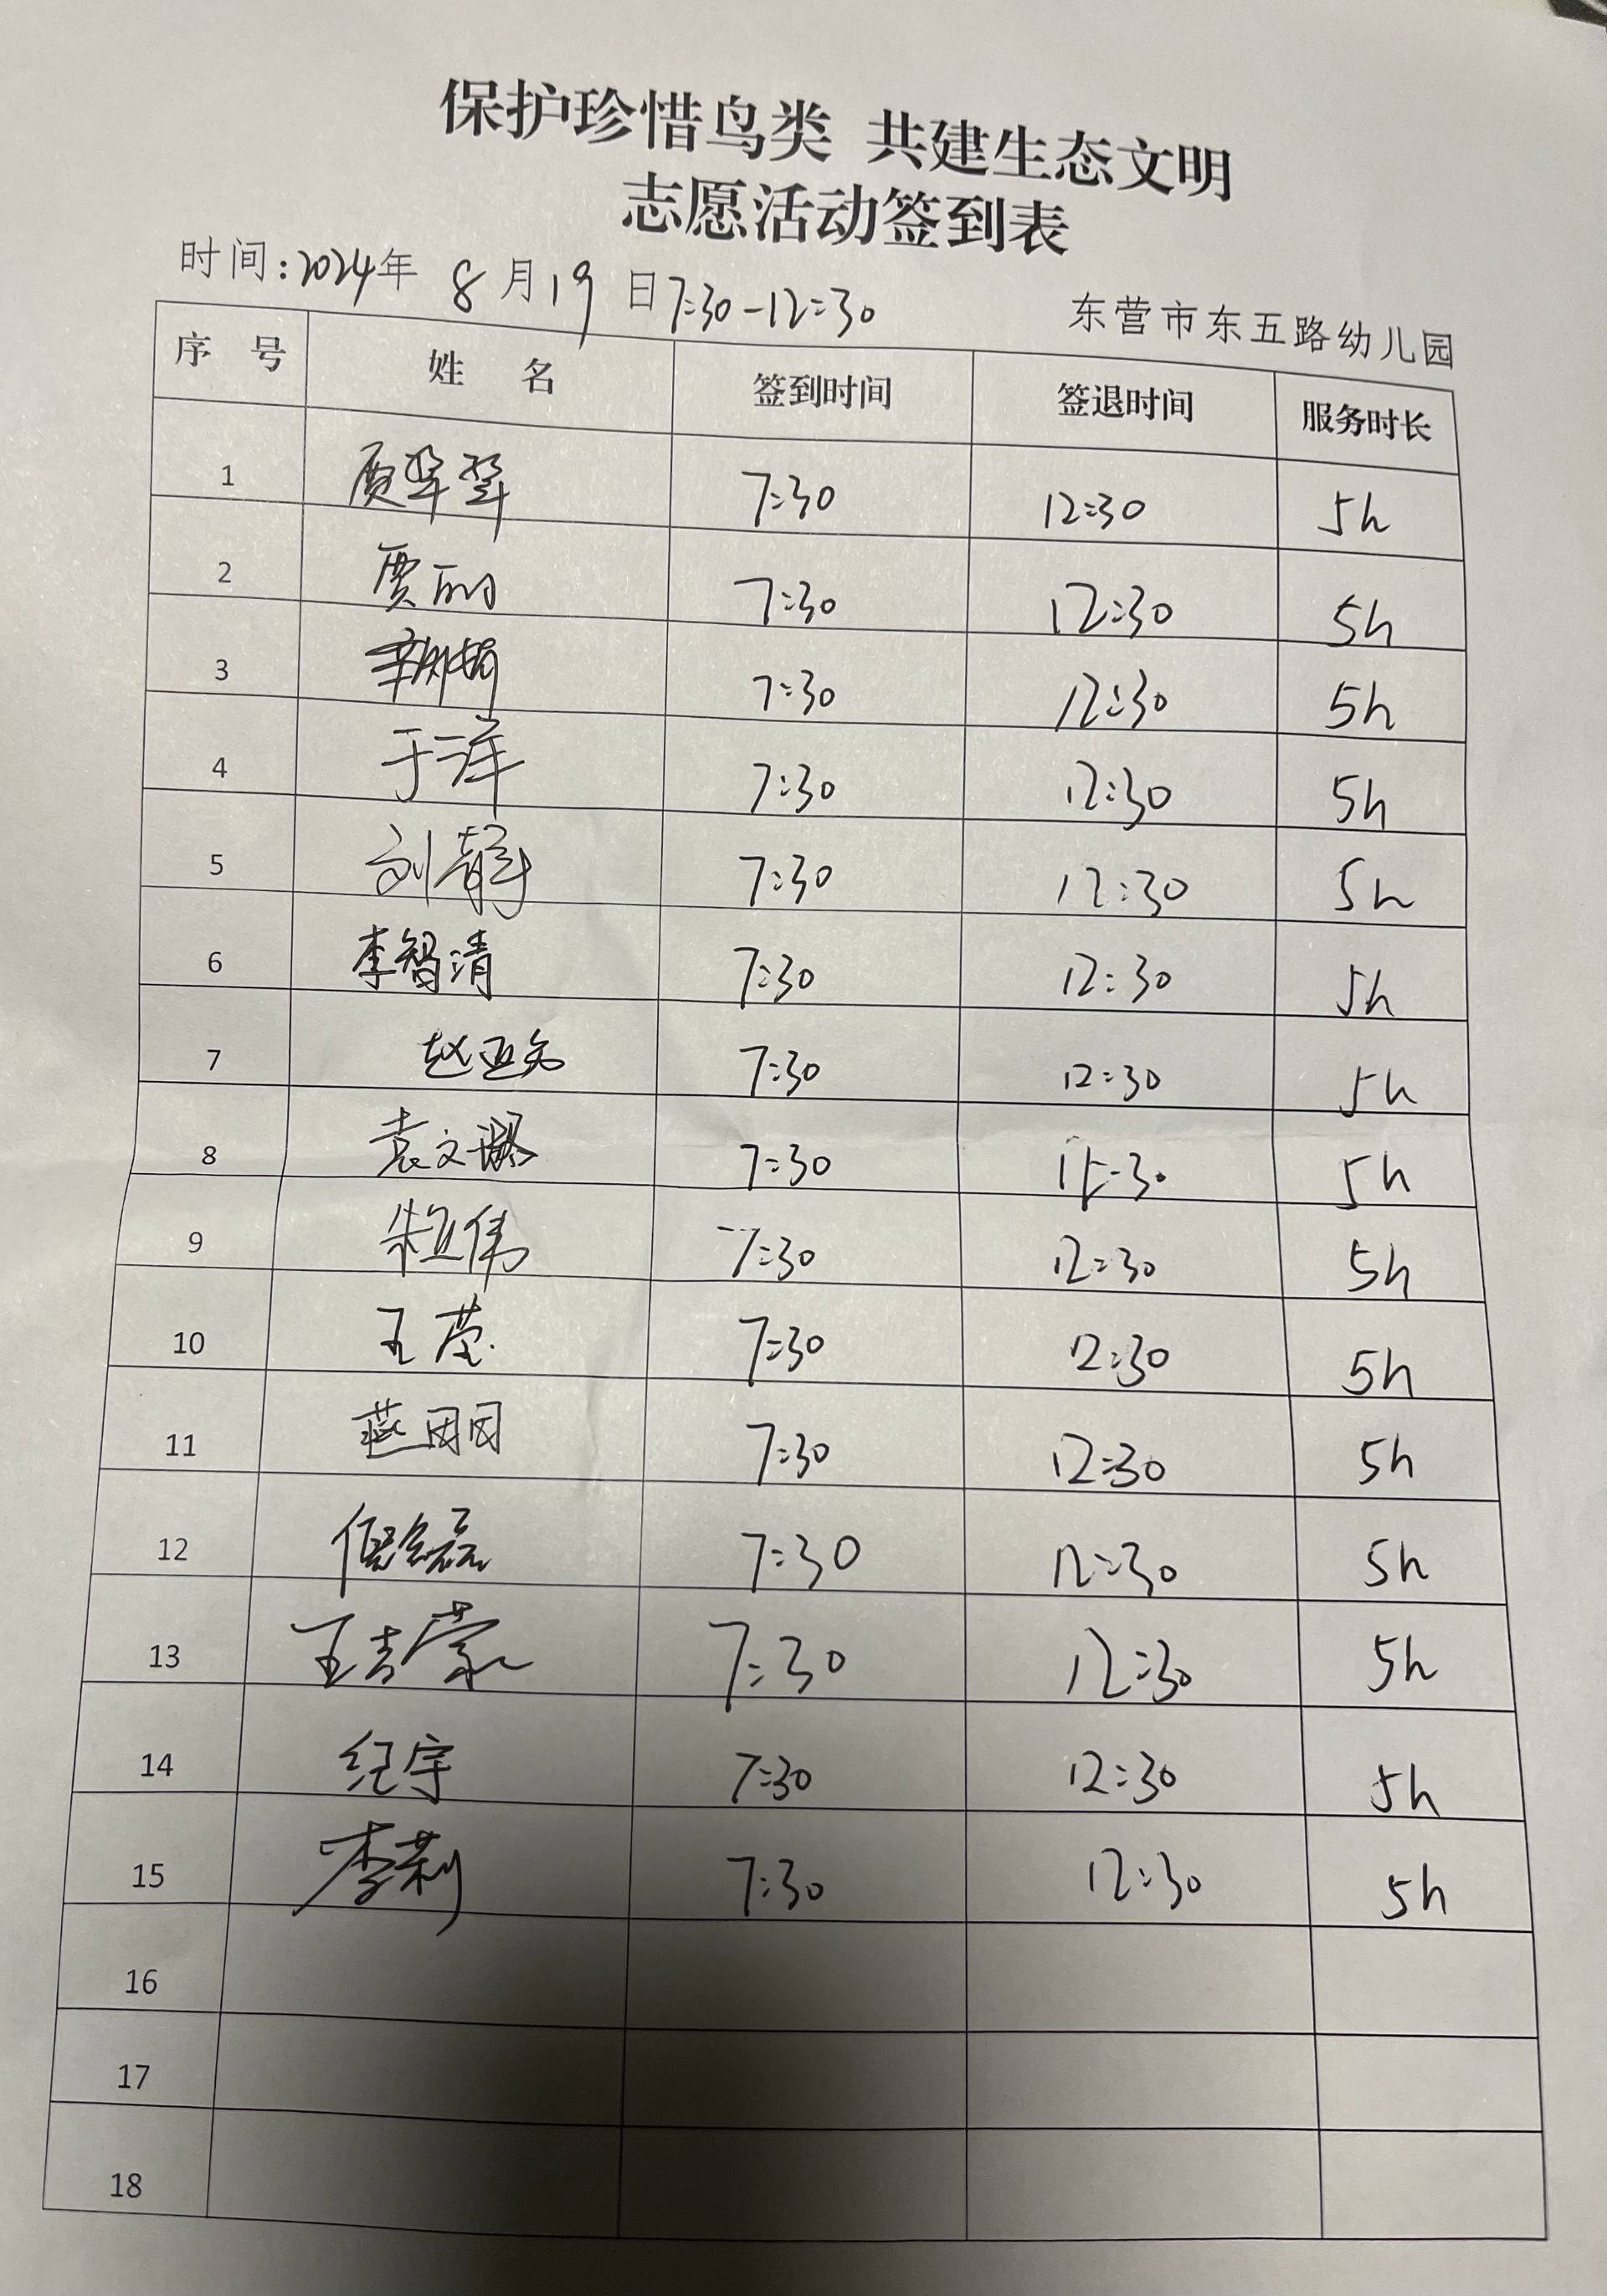 保护珍惜鸟类 共建生态文明
志愿活动签到表
时间:2024年 8月19日7:30-12:30 东营市东五路幼儿园
序号 姓名 签到时间 签退时间 服务时长
1 贾翠翠 7:30 12:30 5h
2 贾丽 7:30 12:30 5h
3 7:30 12:30 5h
4 于洋 7:30 12:30 5h
5 刘静 7:30 12:30 5h
6 李智清 7:30 12:30 5h
7 7:30 12:30 5h
8 袁文璐 7:30 12:30 5h
9 7:30 12:30 5h
10 王莹 7:30 12:30 5h
11 燕因因 7:30 12:30 5h
12 7:30 12:30 5h
13 王吉蒙 7:30 12:30 5h
14 纪宇 7:30 12:30 5h
15 李莉 7:30 12:30 5h
16
17
18